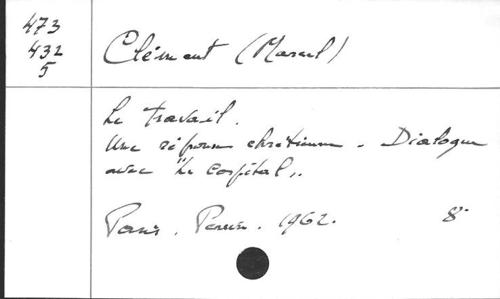 473
432
5
Clément (Marcel)
Le travail.
Une réponse chrétienne. Dialogue
avec "Le Capital".
Paris. Perrin. 1962. 8°